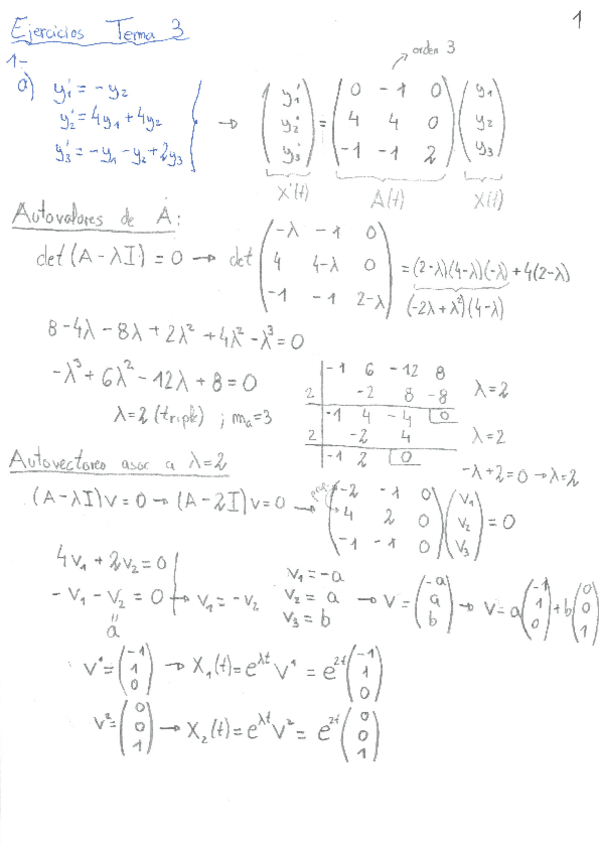 1
Ejercicios Tema 3
1-
a) y₁' = -y₂
y₂' = 4y₁ + 4y₂
y₃' = -y₁ - y₂ + 2y₃
→ (y₁' y₂' y₃') = (0 -1 0 / 4 4 0 / -1 -1 2) (y₁ y₂ y₃)
orden 3
X'(t) A(t) X(t)
Autovalores de A:
det(A-λI) = 0 → det (-λ -1 0 / 4 4-λ 0 / -1 -1 2-λ) = (2-λ)(4-λ)(-λ) + 4(2-λ)
(-2λ+λ²)(4-λ)
8 - 4λ - 8λ + 2λ² + 4λ² - λ³ = 0
-λ³ + 6λ² - 12λ + 8 = 0
λ=2 (triple) ; mₐ=3
-1 6 -12 8
2 -2 8 -8 λ=2
-1 4 -4 0
2 -2 4 λ=2
-1 2 0
-λ+2=0 → λ=2
Autovectores asoc a λ=2
(A-λI)v = 0 → (A-2I)v=0 → (-2 -1 0 / 4 2 0 / -1 -1 0) (v₁ v₂ v₃) = 0
4v₁ + 2v₂ = 0
-v₁ - v₂ = 0 → v₁ = -v₂
"
a
v₁ = -a
v₂ = a
v₃ = b
→ v = (-a a b) → v = a(-1 1 0) + b(0 0 1)
v¹ = (-1 1 0) → X₁(t) = e^λt v¹ = e^2t (-1 1 0)
v² = (0 0 1) → X₂(t) = e^λt v² = e^2t (0 0 1)